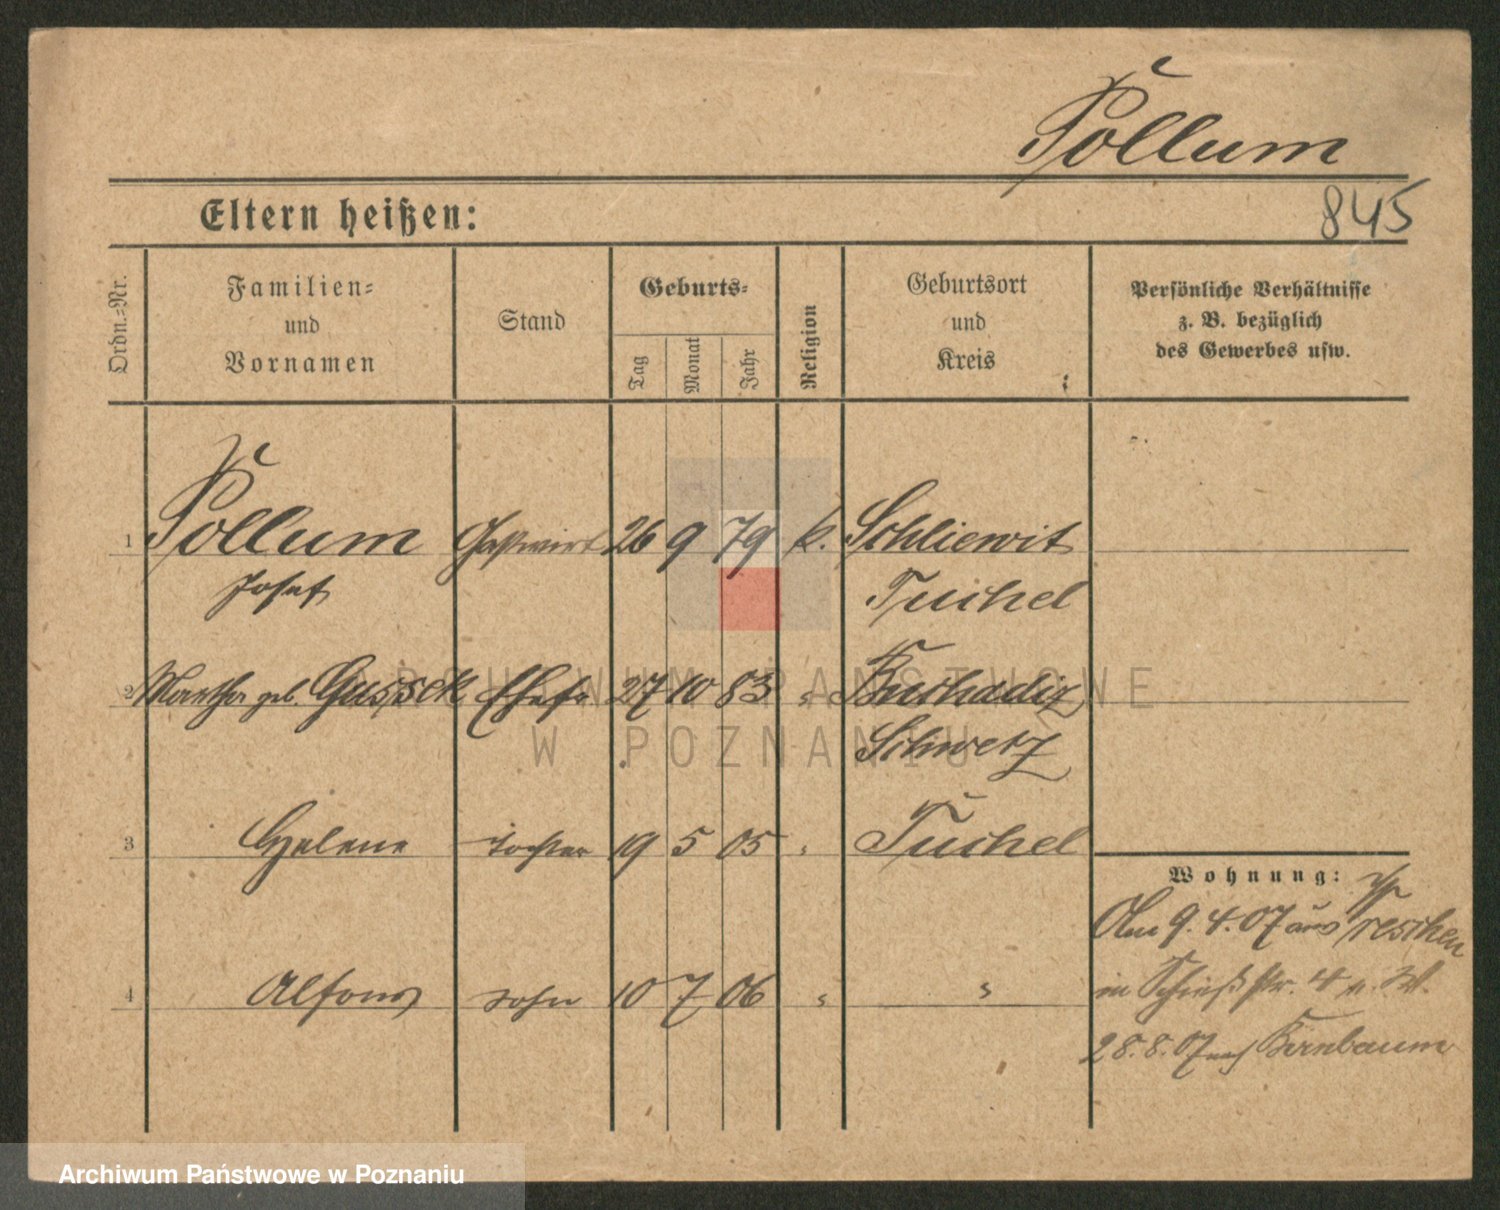 Pollum
845
Eltern heißen:
Ordn.-Nr.
Familien-
und
Vornamen
Stand
Geburts-
Tag
Monat
Jahr
Religion
Geburtsort
und
Kreis
Persönliche Verhältnisse
z. B. bezüglich
des Gewerbes usw.
1 Pollum Gastwirt 26 9 79 k. Schliewitz
Josef Tuchel
2 Martha geb. Gussek Ehefr 27 10 83 "
Schwetz
3 Helene Tochter 19 5 05 " Tuchel
4 Alfons Sohn 10 7 06 " "
Wohnung:
Am 9.4.07 aus
in Schießstr. 4 u. W.
28.8.07 nach Birnbaum
ARCHIWUM PAŃSTWOWE
W POZNANIU
Archiwum Państwowe w Poznaniu